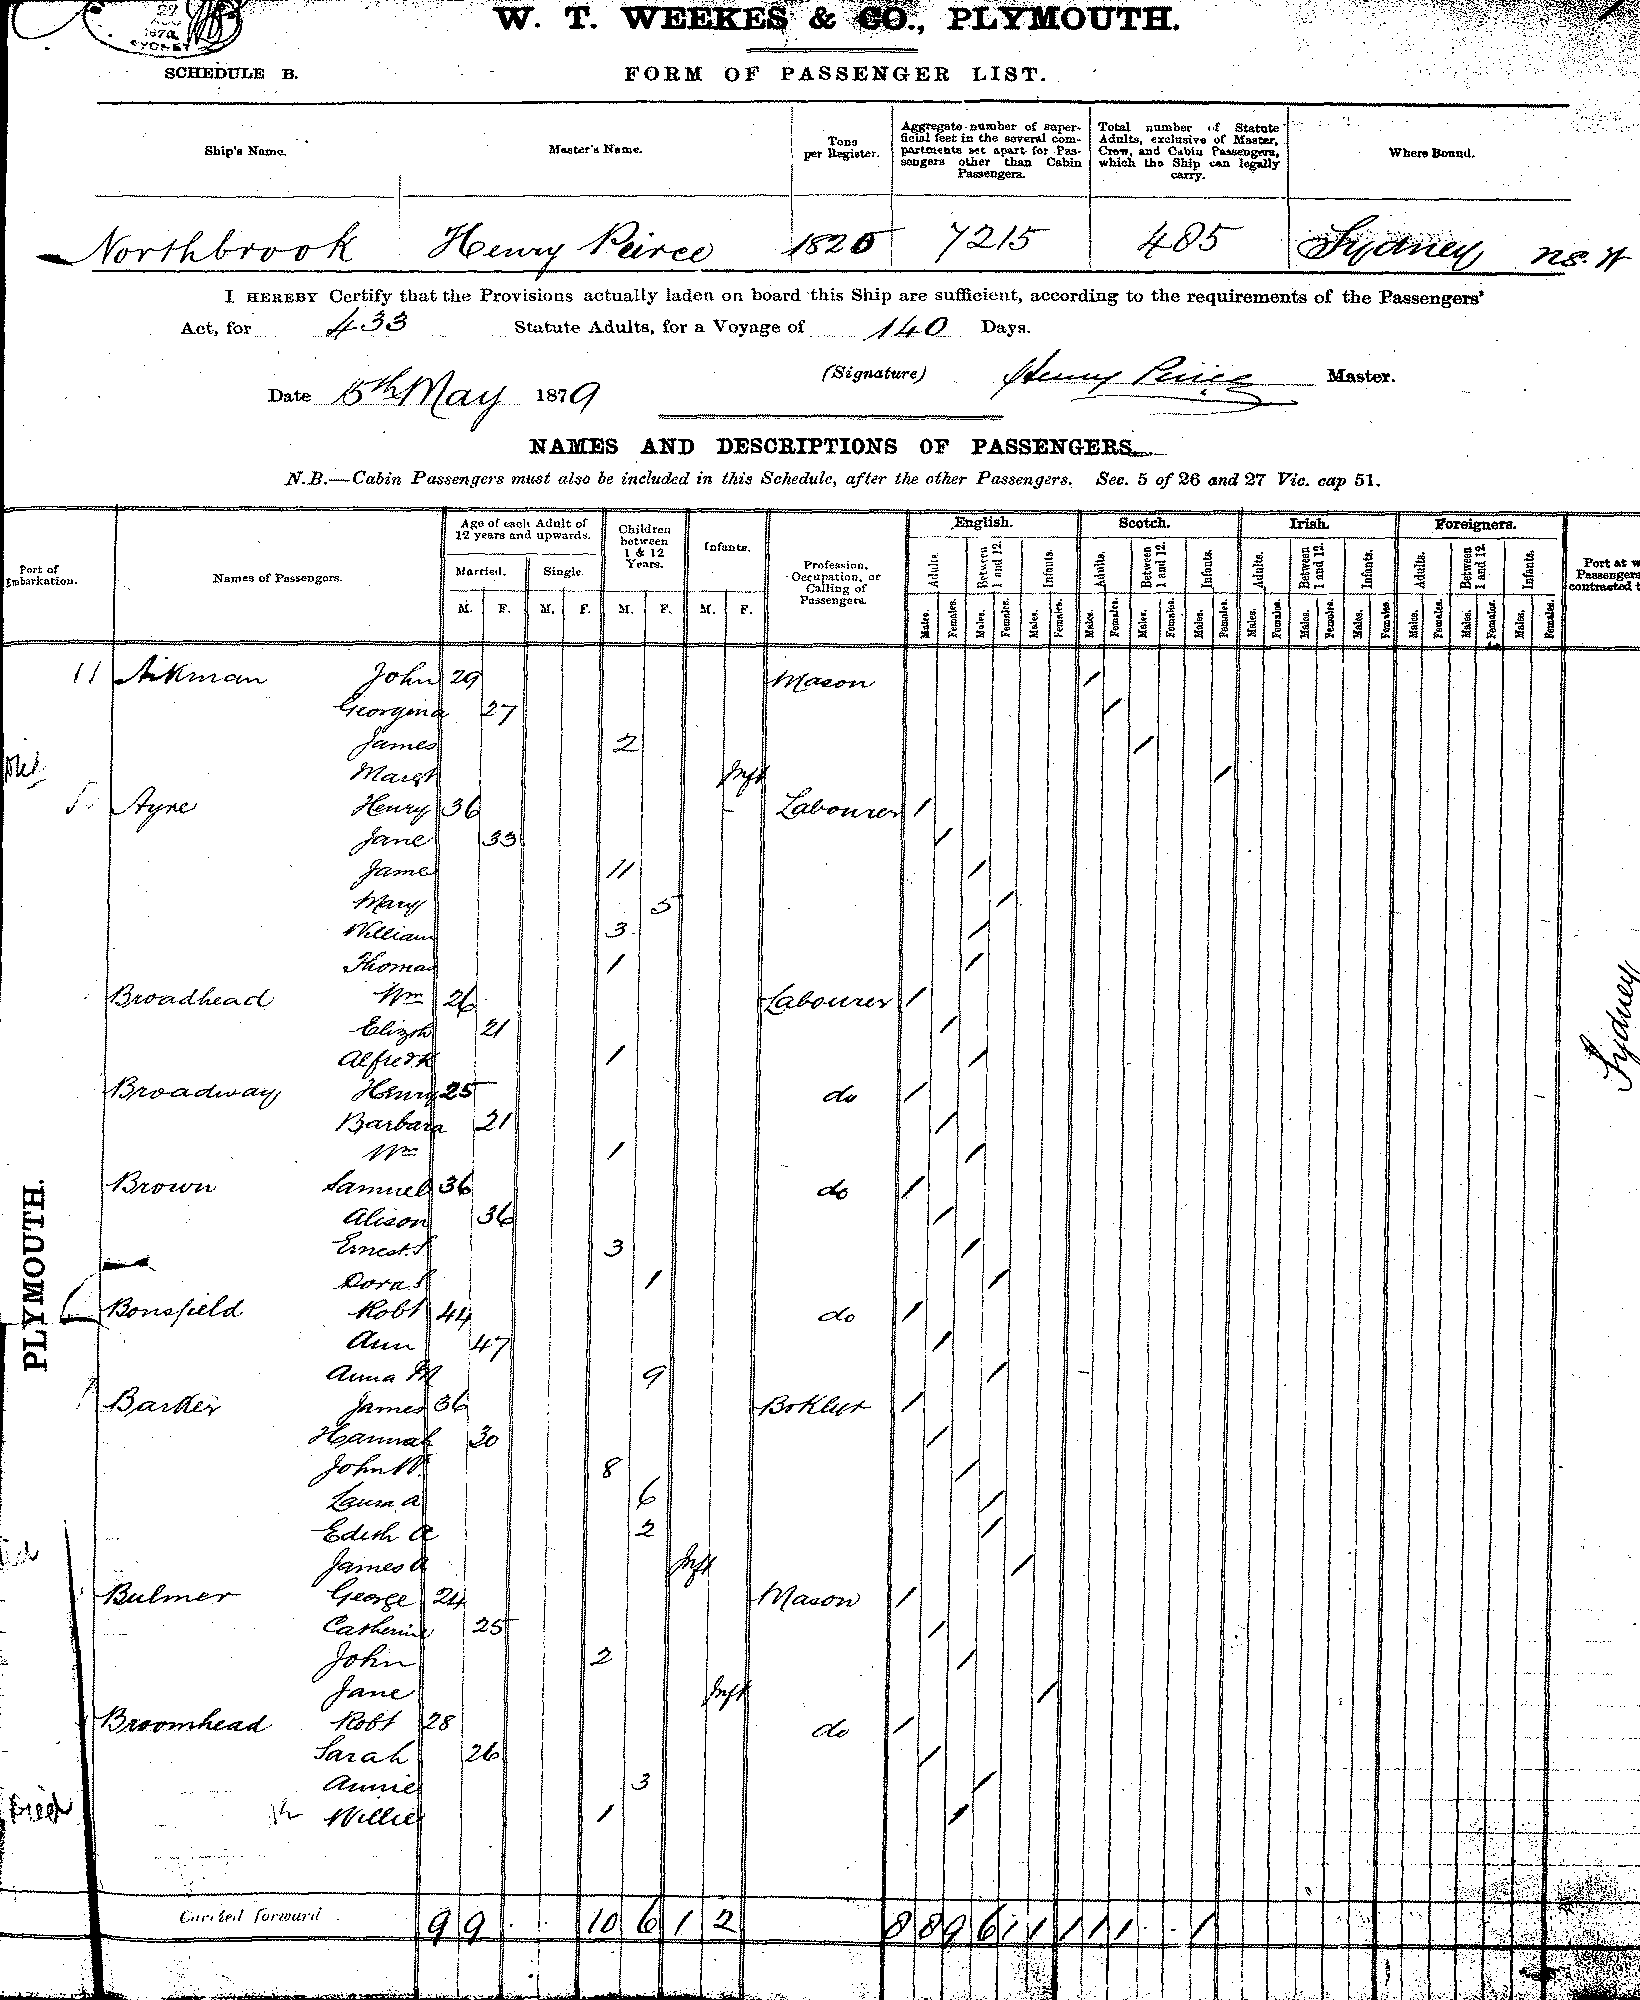 W. T. WEEKES & CO., PLYMOUTH.
SYDNEY
SCHEDULE B.
FORM OF PASSENGER LIST.
Ship's Name. Master's Name. Tons per Register. Aggregate number of superficial feet in the several compartments set apart for Passengers other than Cabin Passengers. Total number of Statute Adults, exclusive of Master, Crew, and Cabin Passengers, which the Ship can legally carry. Where Bound.
Northbrook Henry Peirce 1820 7215 485 Sydney NS.W
I HEREBY Certify that the Provisions actually laden on board this Ship are sufficient, according to the requirements of the Passengers'
Act, for 433 Statute Adults, for a Voyage of 140 Days.
(Signature) Henry Peirce Master.
Date 5th May 1879
NAMES AND DESCRIPTIONS OF PASSENGERS.
N.B.—Cabin Passengers must also be included in this Schedule, after the other Passengers. Sec. 5 of 26 and 27 Vic. cap 51.
Port of Embarkation. Names of Passengers. Age of each Adult of 12 years and upwards. Children between 1 & 12 Years. Infants. Profession, Occupation, or Calling of Passengers. English. Scotch. Irish. Foreigners.
Married. Single.
Adults. Between 1 and 12. Infants. Adults. Between 1 and 12. Infants. Adults. Between 1 and 12. Infants. Adults. Between 1 and 12. Infants.
M. F. M. F. M. F. M. F. Males. Females. Males. Females. Males. Females. Males. Females. Males. Females. Males. Females. Males. Females. Males. Females. Males. Females. Males. Females. Males. Females. Males. Females.
11 Aikman John 29 Mason /
Georgina 27 /
James 2 /
Margt Inft /
5 Ayre Henry 36 Labourer /
Jane 33 /
Jame 11 /
Mary 5 /
William 3 /
Thomas 1 /
Broadhead Wm 26 Labourer /
Elizth 21 /
Alfred K 1 /
Broadway Henry 25 do /
Barbara 21 /
Wm 1 /
Brown Samuel 36 do /
Alison 36 /
Ernest S 3 /
Dora S 1 /
Bonsfield Robt 44 do /
Ann 47 /
Anna M 9 /
Barker James 36 Bcklyr /
Hannah 30 /
John W. 8 /
Laura A 6 /
Edith A 2 /
James A Inft /
Bulmer George 24 Mason /
Catherine 25 /
John 2 /
Jane Inft /
Broomhead Robt 28 do /
Sarah 26 /
Annie 3 /
Willie 1 /
Carried forward 9 9 10 6 1 2 8 8 9 6 1 1 1 1 1 1
PLYMOUTH.
Sydney